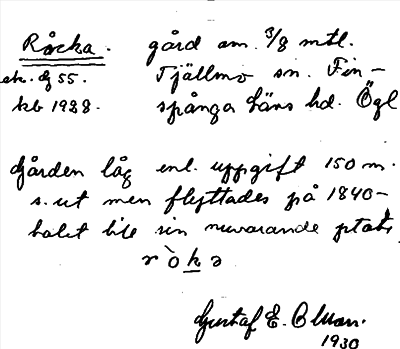 Råcka. gård om 3/8 mtl.
ek. bl 55. Tjällmo sn. Fin-
kb 1928. spånga läns hd. Ögl
Gården låg enl. uppgift 150 m.
s.ut men flyttades på 1840-
talet till sin nuvarande plats
ròka
Gustaf E.
1930